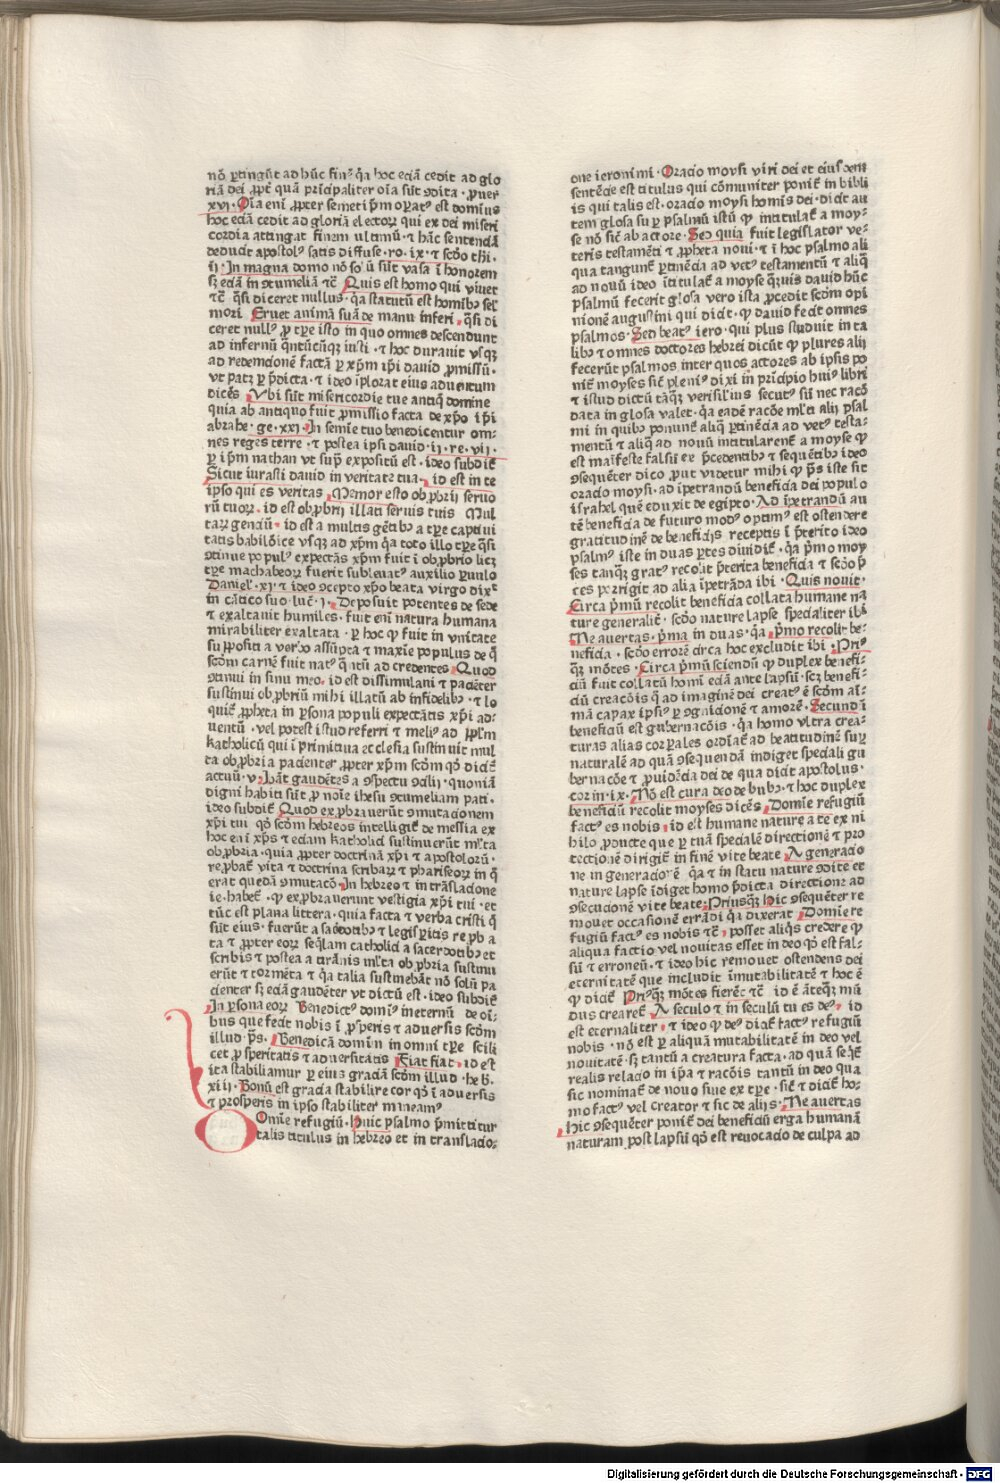 nō ꝑtingūt ad hūc finꝫ q̄a hoc eciā cedit ad glo
riā dei ꝓpt̄ quā prīcipaliter oīa sūt ꝯdita · ꝓuer
xvi · Oīa enī ꝓpter semetip̄m oꝑatꝰ est domīus
hoc eciā cedit ad gloriā electoꝝ qui ex dei miseri
cordia attingāt finem ultimū · ⁊ hāc sentenciā
deducit apostolꝰ satis diffuse · ro · ix · ⁊ scd̄o thi ·
ij · In magna domo nō soꝰ ū sūt vasa ī honorem
sꝫ eciā in ꝯtumeliā ⁊c̄ Quis est homo qui viuet
⁊c̄ q̄si diceret nullus · q̄a statutū est homībꝰ sel̄
mori Eruet animā suā de manu inferi · q̄si di
ceret nullꝰ ꝓ tꝑe isto in quo omnes descendunt
ad infernū q̄ntūcūqꝫ iusti · ⁊ hoc durauit vsqꝫ
ad redemcionē factā ꝑ xp̄m ip̄i dauid ꝓmissū ·
vt patꝫ ꝑ p̄dicta · ⁊ ideo īplorat eius aduentum
dicēs Vbi sūt misericordie tue antiq̄ domine
quia ab antiquo fuit ꝓmissio facta de xp̄o ip̄i
abrahe · ge · xxi · In semīe tuo benedicentur om-
nes reges terre · ⁊ postea ipsi dauid · ij · re · vij ·
ꝑ ip̄m nathan vt sup̄ expositū est · ideo subdit̄
Sicut iurasti dauid in veritate tua · id est in te
ipso qui es veritas Memor esto obꝓbrij seruo
rū tuoꝝ · id est obꝓbrij illati seruis tuis Mul
taꝝ genciū · id est a multis gētibꝰ a tꝑe captiui
tatis babilōice vsqꝫ ad xp̄m q̄a toto illo tꝑe q̄si
ꝯtinue populꝰ expectās xp̄m fuit ī obꝓbrio licꝫ
tꝑe machabeoꝝ fuerit subleuatꝰ auxilio ꝑuulo
Danielꝰ · xi · ⁊ ideo ꝯcepto xp̄o beata virgo dixᵗ
in cātico suo · luc̄ · i · Deposuit potentes de sede
⁊ exaltauit humiles · fuit enī natura humana
mirabiliter exaltata · ꝑ hoc ꝙ fuit in vnitate
suppositi a verbo assūpta ⁊ maxīe populus de q̄
scd̄m carnē fuit natꝰ q̄ntū ad credentes Quod
ꝯtinui in sinu meo · id est dissimulaui ⁊ paciēter
sustinui obꝓbriū mihi illatū ab infidelibꝰ · ⁊ lo
quit̄ ꝓpheta in ꝑsona populi expectātis xp̄i ad-
uentū · vel potest istud referri ⁊ meliꝰ ad ppl̄m
katholicū qui ī primitiua ecclesia sustinuit mul
ta obꝓbria pacienter ꝓpter xp̄m scd̄m qd̄ dicit̄
actuū · v · Ibāt gaudētes a ꝯspectu ꝯcilij · quoniā
digni habiti sūt ꝓ noīe ihesu ꝯtumeliam pati ·
ideo subdit̄ Quod exꝓbrauerūt ꝯmutacionem
xp̄i tui qd̄ scd̄m hebreos intelligit̄ de messia ex
hoc enī xp̄s ⁊ eciam katholici sustinuerūt ml̄ta
obꝓbria · quia ꝓpter doctrinā xp̄i ⁊ apostoloꝝ ·
reꝓbat̄ vita ⁊ doctrina scribaꝝ ⁊ phariseoꝝ in q̄
erat quedā ꝯmutacō · In hebreo ⁊ in trāslacione
ie · habet̄ · ꝙ exꝓbrauerunt vestigia xp̄i tui · et
tūc est plana littera · quia facta ⁊ verba cristi q̄
sūt eius · fuerūt a sacerdotibꝰ ⁊ legisꝑitis reꝓba
ta ⁊ ꝓpter eoꝝ seq̄lam catholici a sacerdotibꝰ et
scribis ⁊ postea a tirānis ml̄ta obꝓbria sustinu
erūt ⁊ tormēta ⁊ q̄a talia sustinebāt nō solū pa
cienter sꝫ eciā gaudēter vt dictū est · ideo subdit̄
In ꝑsona eoꝝ Benedictꝰ domīꝰ ineternū de oī-
bus que fecit nobis ī ꝓsperis ⁊ aduersis scd̄m
illud · ps̄ · Benedicā domīm in omni tꝑe scili
cet ꝓsperitatis ⁊ aduersitatis Fiat fiat · id est
ita stabiliamur ꝑ eius graciā scd̄m illud · heb̄ ·
xiij · Bonū est gracia stabilire cor qd̄ ī aduersis
⁊ prosperis in ipso stabiliter mineamꝰ
Omīe refugiū · Huic psalmo p̄mittitur
talis titulus in hebreo et in translacio-
one ieronimi · Oracio moysi viri dei et eius dem
sentēcie est titulus qui cōmuniter ponit̄ in bibli
is qui talis est · oracio moysi homīs dei · dicit au
tem glosa suꝑ psalmū istū ꝙ intitulat̄ a moy-
se nō sic̄ ab actore · Sed quia fuit legislator ve-
teris testamēti ⁊ ꝓpheta noui · ⁊ ī hoc psalmo ali
qua tangunt̄ ꝑtinēcia ad vetꝰ testamentū ⁊ aliq̄
ad nouū ideo ītitulat̄ a moyse q̄uis dauid hūc
psalmū fecerit glosa vero ista ꝓcedit scd̄m opi
nionē augustini qui dicit · ꝙ dauid fecit omnes
psalmos · Sed beatꝰ iero · qui plus studuit in ta
libꝰ ⁊ omnes doctores hebrei dicūt ꝙ plures alij
fecerūt psalmos inter quos actores ab ipsis po
nit̄ moyses sic̄ pleniꝰ dixi in prīcipio huiꝰ libri
⁊ istud dictū tāqꝫ verisiliꝰ secutꝰ sū nec racō
data in glosa valet · q̄a eadē racōe ml̄ti alij psal
mi in quibꝰ ponunt̄ aliq̄ ꝑtinēcia ad vetꝰ testa-
mentū ⁊ aliq̄ ad nouū intitularent̄ a moyse ꝙ
est maīfeste falsū ex p̄cedentibꝰ ⁊ sequētibꝰ ideo
ꝯsequēter dico ꝓut videtur mihi ꝙ ps̄ iste sit
oracio moysi · ad īpetrandū beneficia dei populo
israhel quē eduxit de egipto · Ad īpetrandū au
tē beneficia de futuro modꝰ optimꝰ est ostendere
gratitudinē de beneficijs receptis ī p̄terito ideo
psalmꝰ iste in duas ꝑtes diuidit̄ · q̄a p̄mo moy
ses tanqꝫ gratꝰ recolit p̄terita beneficia ⁊ scd̄o p̄
ces porrigit ad alia īpetrāda ibi · Quis nouit ·
Circa p̄mū recolit beneficia collata humane na
ture generalit̄ · scd̄o nature lapse specialiter ibi
Ne auertas · p̄ma in duas · q̄a p̄mo recolit be-
neficia · scd̄o errorē circa hoc excludit ibi · Priꝰ
qꝫ mōtes · Circa p̄mū sciendū ꝙ duplex benefi-
ciū fuit collatū homī eciā ante lapsū · scꝫ benefi-
ciū creacōis q̄ ad imaginē dei creatꝰ ē scd̄m ai-
mā capax ipsiꝰ ꝑ ꝯgnicionē ⁊ amorē · Secundū
beneficiū est gubernacōis · q̄a homo vltra crea-
turas alias corꝑales ordīat̄ ad beatitudinē suꝑ
naturalē ad quā ꝯsequendā indiget speciali gu
bernacōe ⁊ ꝓuidēcia dei de qua dicit apostolus ·
cor in · ix · Nō est cura deo de bubꝰ · ⁊ hoc duplex
beneficiū recolit moyses dicēs Domīe refugiū
factꝰ es nobis · id est humane nature a te ex ni
hilo ꝓducte que ꝑ tuā specialē directionē ⁊ pro
tectionē dirigit̄ in finē vite beate A generacio
ne in generacioē q̄a ⁊ in statu nature ꝯdite et
nature lapse īdiget homo p̄dicta directione ad
ꝯsecucionē vite beate Priusqꝫ Hic ꝯsequēter re
mouet occasionē errādi q̄a dixerat Domīe re
fugiū factꝰ es nobis ⁊c̄ · posset aliq̄s credere ꝙ
aliqua factio vel nouitas esset in deo qd̄ est fal-
sū ⁊ erroneū · ⁊ ideo hic remouet ostendens dei
eternitatē que includit īmutabilitatē ⁊ hoc ē
ꝙ dicit̄ Priꝰqꝫ mōtes fierēt̄ ⁊c̄ id ē āteqꝫ mū
dus crearet̄ A seculo ⁊ in seculū tu es deꝰ · id
est eternaliter · ⁊ ideo ꝙ deꝰ dicit̄ factꝰ refugiū
nobis · nō est ꝑ aliquā mutabilitatē in deo vel
nouitatē · sꝫ tantū a creatura facta · ad quā seq̄t̄
realis relacio in ip̄a ⁊ racōis tantū in deo qua
sic nominat̄ de nouo siue ex tꝑe · sic̄ ⁊ dicit̄ ho-
mo factꝰ vel creator ⁊ sic de alijs · Ne auertas
Hic ꝯsequēter ponit̄ dei beneficiū erga humanā
naturam post lapsū qd̄ est reuocacio de culpa ad
Digitalisierung gefördert durch die Deutsche Forschungsgemeinschaft - DFG